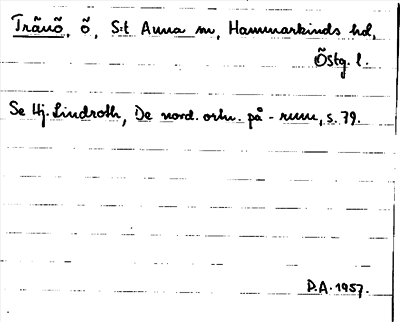 Tränö, ö, S:t Anna sn, Hammarkinds hd,
Östg. l.
Se Hj. Lindroth, De nord. ortn. på -rum, s. 79.
D.A. 1957.